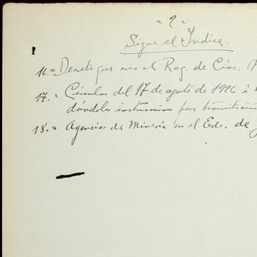 - 2 -
Sigue el Indice.
16.= Denuti que en el Reg. de Cias.
17.= Circular del 17 de agosto de 1926 á
dandoles instrucciones por
18.= Agencias de Minería en el Edo. de